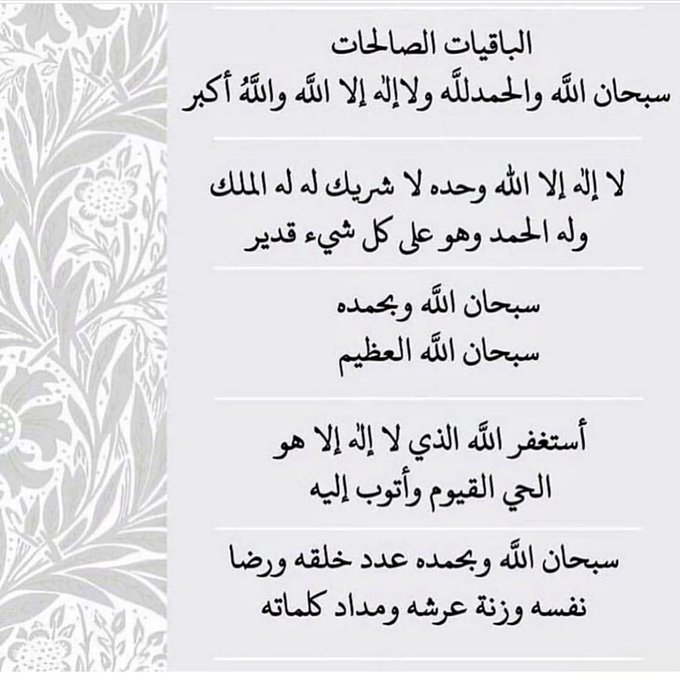 الباقيات الصالحات
سبحان اللَّه والحمدللَّه ولاإلٰه إلا اللَّه واللَّهُ أكبر
لا إلٰه إلا الله وحده لا شريك له له الملك
وله الحمد وهو على كل شيء قدير
سبحان اللَّه وبحمده
سبحان اللَّه العظيم
أستغفر اللَّه الذي لا إلٰه إلا هو
الحي القيوم وأتوب إليه
سبحان اللَّه وبحمده عدد خلقه ورضا
نفسه وزنة عرشه ومداد كلماته